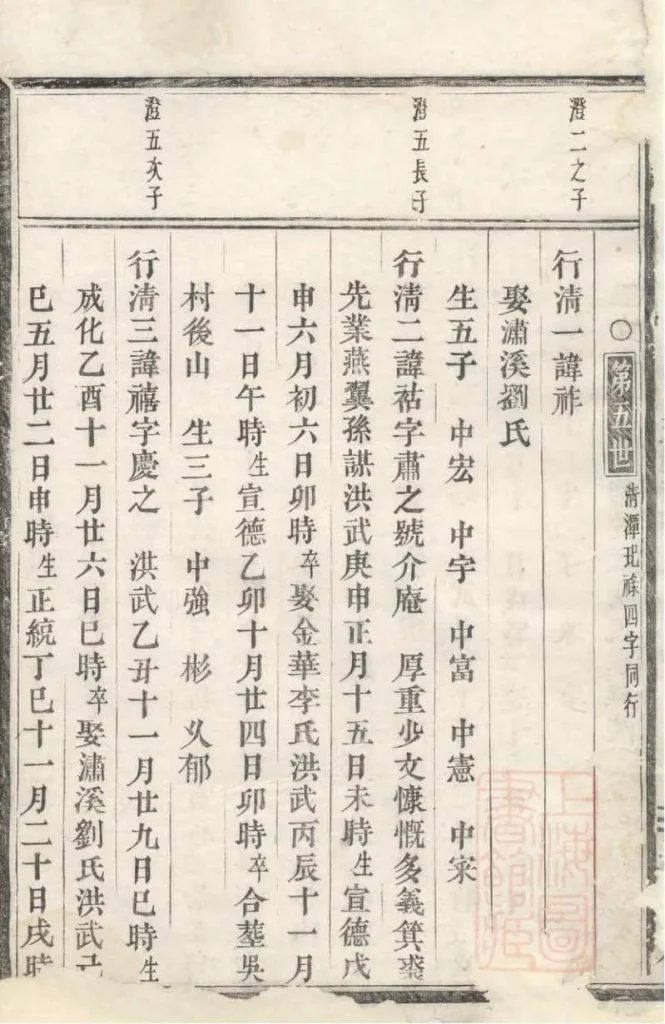 ○第五世 清潭玘祿四字同行
澄二之子
行清一諱祚
娶瀟溪劉氏
生五子 中宏 中宇 中富 中憲 中宷
澄五長子
行清二諱祜字肅之號介庵 厚重少文慷慨多義箕裘
先業燕翼孫謀洪武庚申正月十五日未時生宣德戊
申六月初六日卯時卒娶金華李氏洪武丙辰十一月
十一日午時生宣德乙卯十月廿四日卯時卒合塟吳
村後山 生三子 中強 彬 乂郁
澄五次子
行清三諱禧字慶之 洪武乙丑十一月廿九日巳時生
成化乙酉十一月廿六日巳時卒娶瀟溪劉氏洪武己
巳五月廿二日申時生正統丁巳十一月二十日戌時
上海圖
書館藏